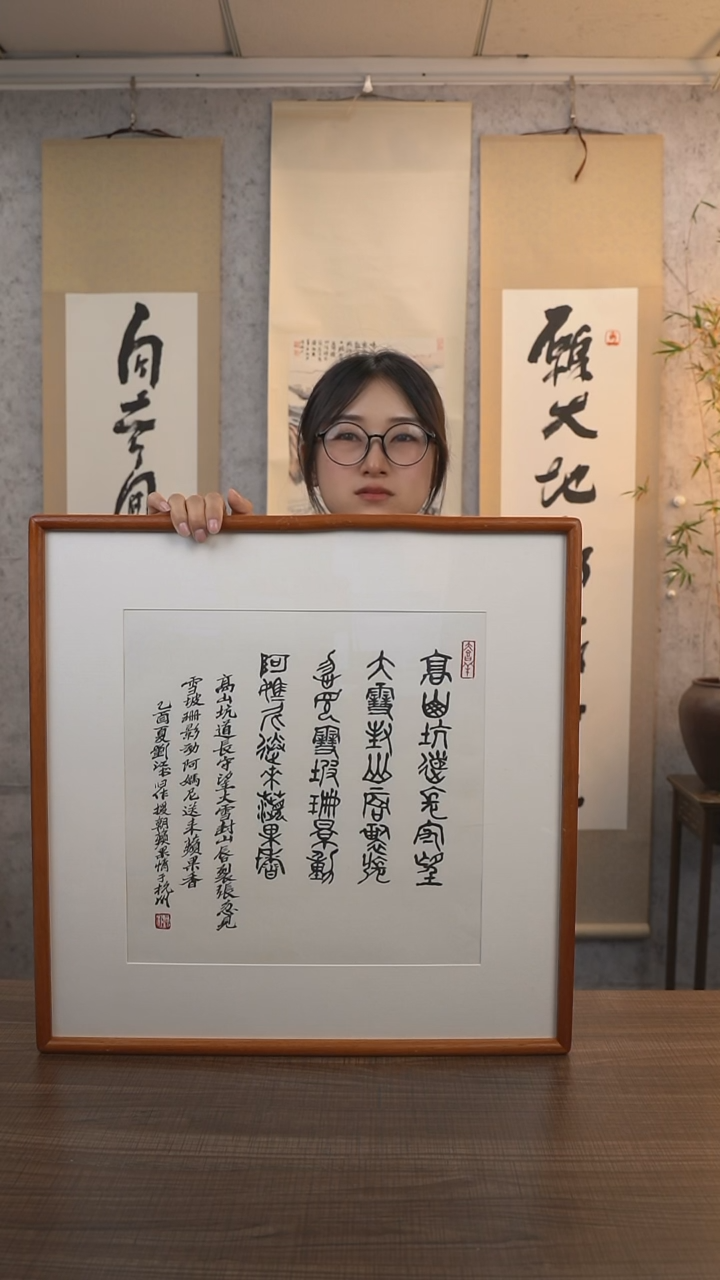 大地
高山坑道長守望
大雪封山唇裂
忽見雪坡珊影動
阿媽尼送來蘋果香
高山坑道長守望大雪封山唇裂張忽見
雪坡珊影动阿媽尼送来蘋果香
乙酉夏劉江作援朝蘋果情于杭州